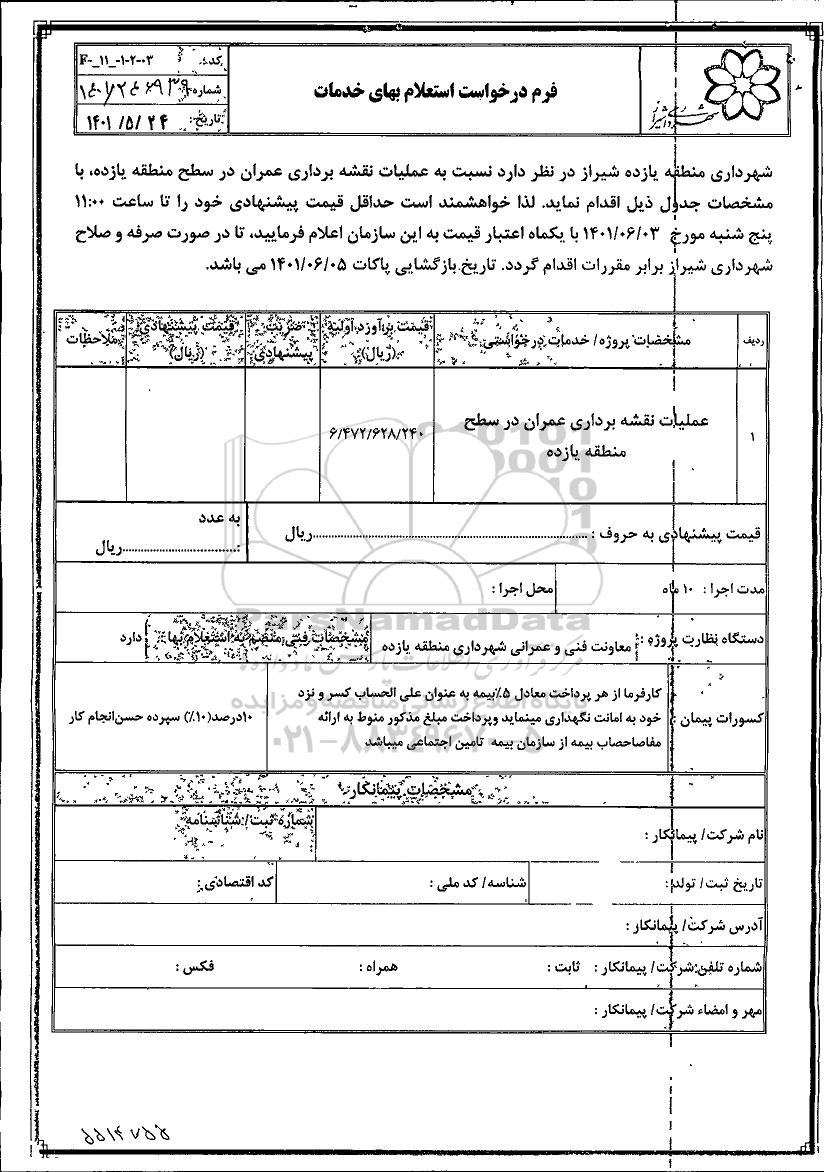 کد: F-_11_-1-2-03
شماره:
تاریخ: 1401/5/24
فرم درخواست استعلام بهای خدمات
شهرداری منطقه یازده شیراز در نظر دارد نسبت به عملیات نقشه برداری عمران در سطح منطقه یازده، با
مشخصات جدول ذیل اقدام نماید. لذا خواهشمند است حداقل قیمت پیشنهادی خود را تا ساعت ۱۱:۰۰
پنج شنبه مورخ ۱۴۰۱/۰۶/۰۳ با یکماه اعتبار قیمت به این سازمان اعلام فرمایید، تا در صورت صرفه و صلاح
شهرداری شیراز برابر مقررات اقدام گردد. تاریخ بازگشایی پاکات ۱۴۰۱/۰۶/۰۵ می باشد.
ردیف
مشخصات پروژه/ خدمات درخواستی
قیمت برآورد اولیه
(ریال)
ضریب
پیشنهادی
قیمت پیشنهادی
(ریال)
ملاحظات
۱
عملیات نقشه برداری عمران در سطح
منطقه یازده
۶/۴۷۲/۶۲۸/۲۴۰
قیمت پیشنهادی به حروف : ............ریال
به عدد
:............ریال
مدت اجرا : ۱۰ ماه
محل اجرا :
دستگاه نظارت پروژه :
معاونت فنی و عمرانی شهرداری منطقه یازده
مشخصات فنی منضم به استعلام بها :
دارد
کسورات پیمان :
کارفرما از هر پرداخت معادل ۵٪بیمه به عنوان علی الحساب کسر و نزد
خود به امانت نگهداری مینماید وپرداخت مبلغ مذکور منوط به ارائه
مفاصاحصاب بیمه از سازمان بیمه تامین اجتماعی میباشد
۱۰درصد(۱۰٪) سپرده حسن‌انجام کار
مشخصات پیمانکار
نام شرکت/ پیمانکار :
شماره ثبت/ شناسنامه
تاریخ ثبت/ تولد:
شناسه/ کد ملی :
کد اقتصادی :
آدرس شرکت/ پیمانکار :
شماره تلفن شرکت/ پیمانکار : ثابت :
همراه :
فکس :
مهر و امضاء شرکت/ پیمانکار :
ParsNamadData
پایگاه اطلاع رسانی مناقصه و مزایده
۰۲۱-۸۸۳۴۹۶۷۰-۵